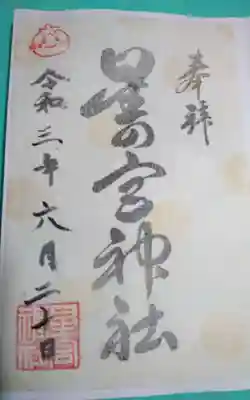 奉拝
星の宮神社
令和三年六月二十日